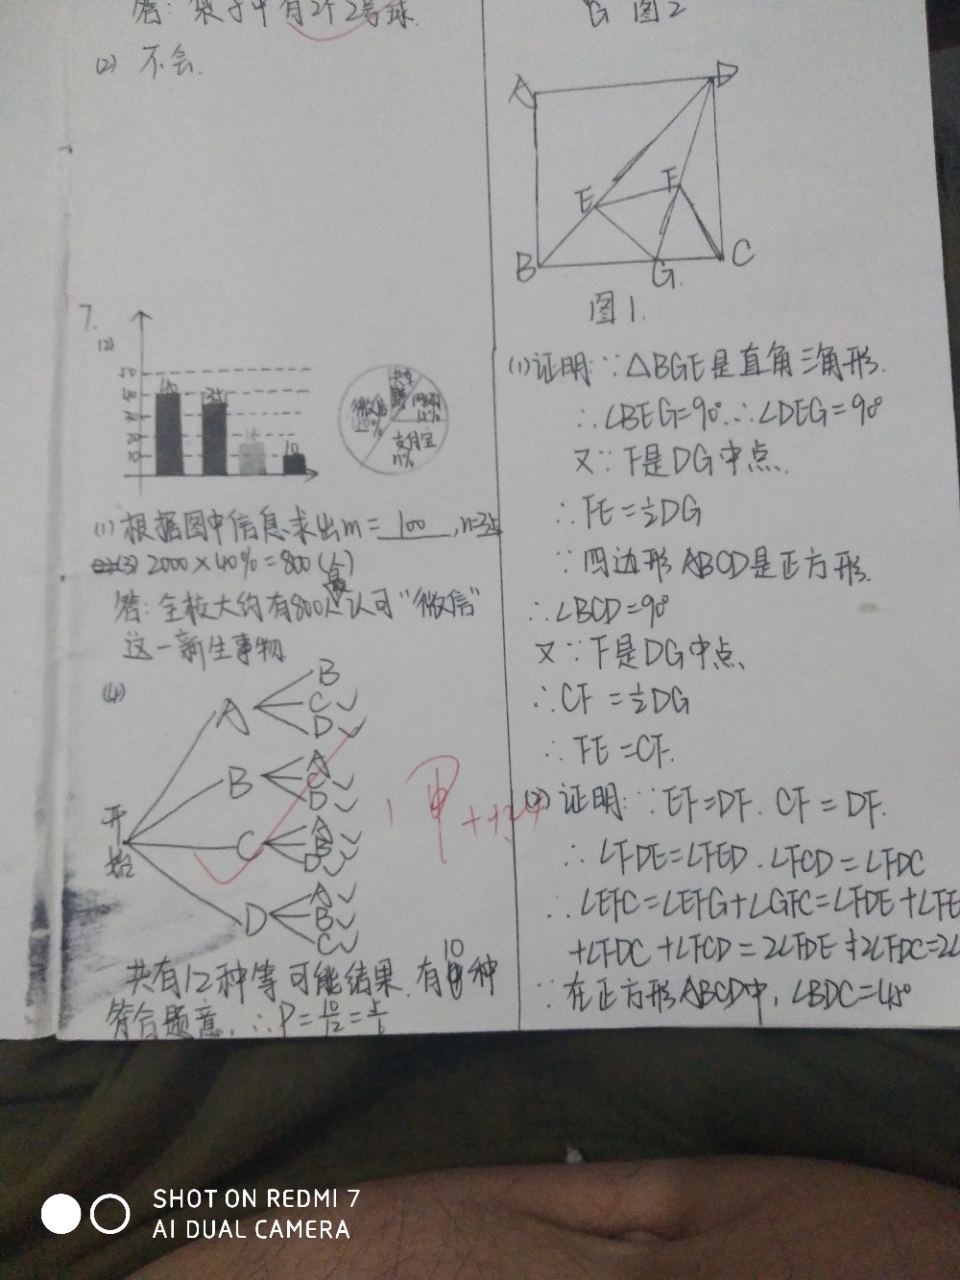 答：袋子中有2个2号球.
(2) 不会.
7.
(2)
50
40
35
10
微信
支付宝
n%
15%
(1) 根据图中信息求出m=100, n=35
(3) 2000×40%=800(名)
答：全校大约有800人最认可"微信"
这一新生事物
(4)
开始
A
B
C
D
B
A
C
D
C
A
B
D
D
A
B
C
共有12种等可能结果.有10种
符合题意.∴P=10/12=5/6
甲++
G 图2
A
D
E
F
B
G
C
图1.
(1)证明:∵△BGE是直角三角形.
∴∠BEG=90°.∴∠DEG=90°
又∵F是DG中点.
∴FE=½DG
∵四边形ABCD是正方形.
∴∠BCD=90°
又∵F是DG中点、
∴CF=½DG
∴FE=CF.
(2)证明:∵EF=DF.CF=DF.
∴∠FDE=∠FED.∠FCD=∠FDC
∴∠EFC=∠EFG+∠GFC=∠FDE+∠FE
+∠FDC+∠FCD=2∠FDE+2∠FDC=2∠
∵在正方形ABCD中,∠BDC=45°
SHOT ON REDMI 7
AI DUAL CAMERA